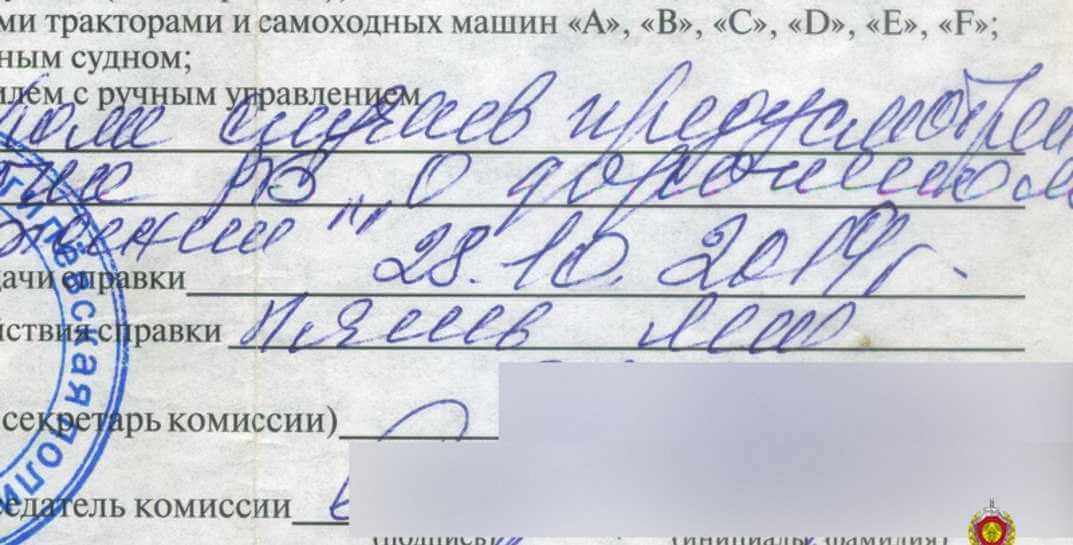 ми тракторами и самоходных машин «A», «B», «C», «D», «E», «F»;
ным судном;
илем с ручным управлением
роме случаев предусмотрен
РБ „О дорожном
движении" 28.10.2014г.
дачи справки
йствия справки пять лет
секретарь комиссии)
седатель комиссии
(подпись) (инициалы, фамилия)
гилевская поли